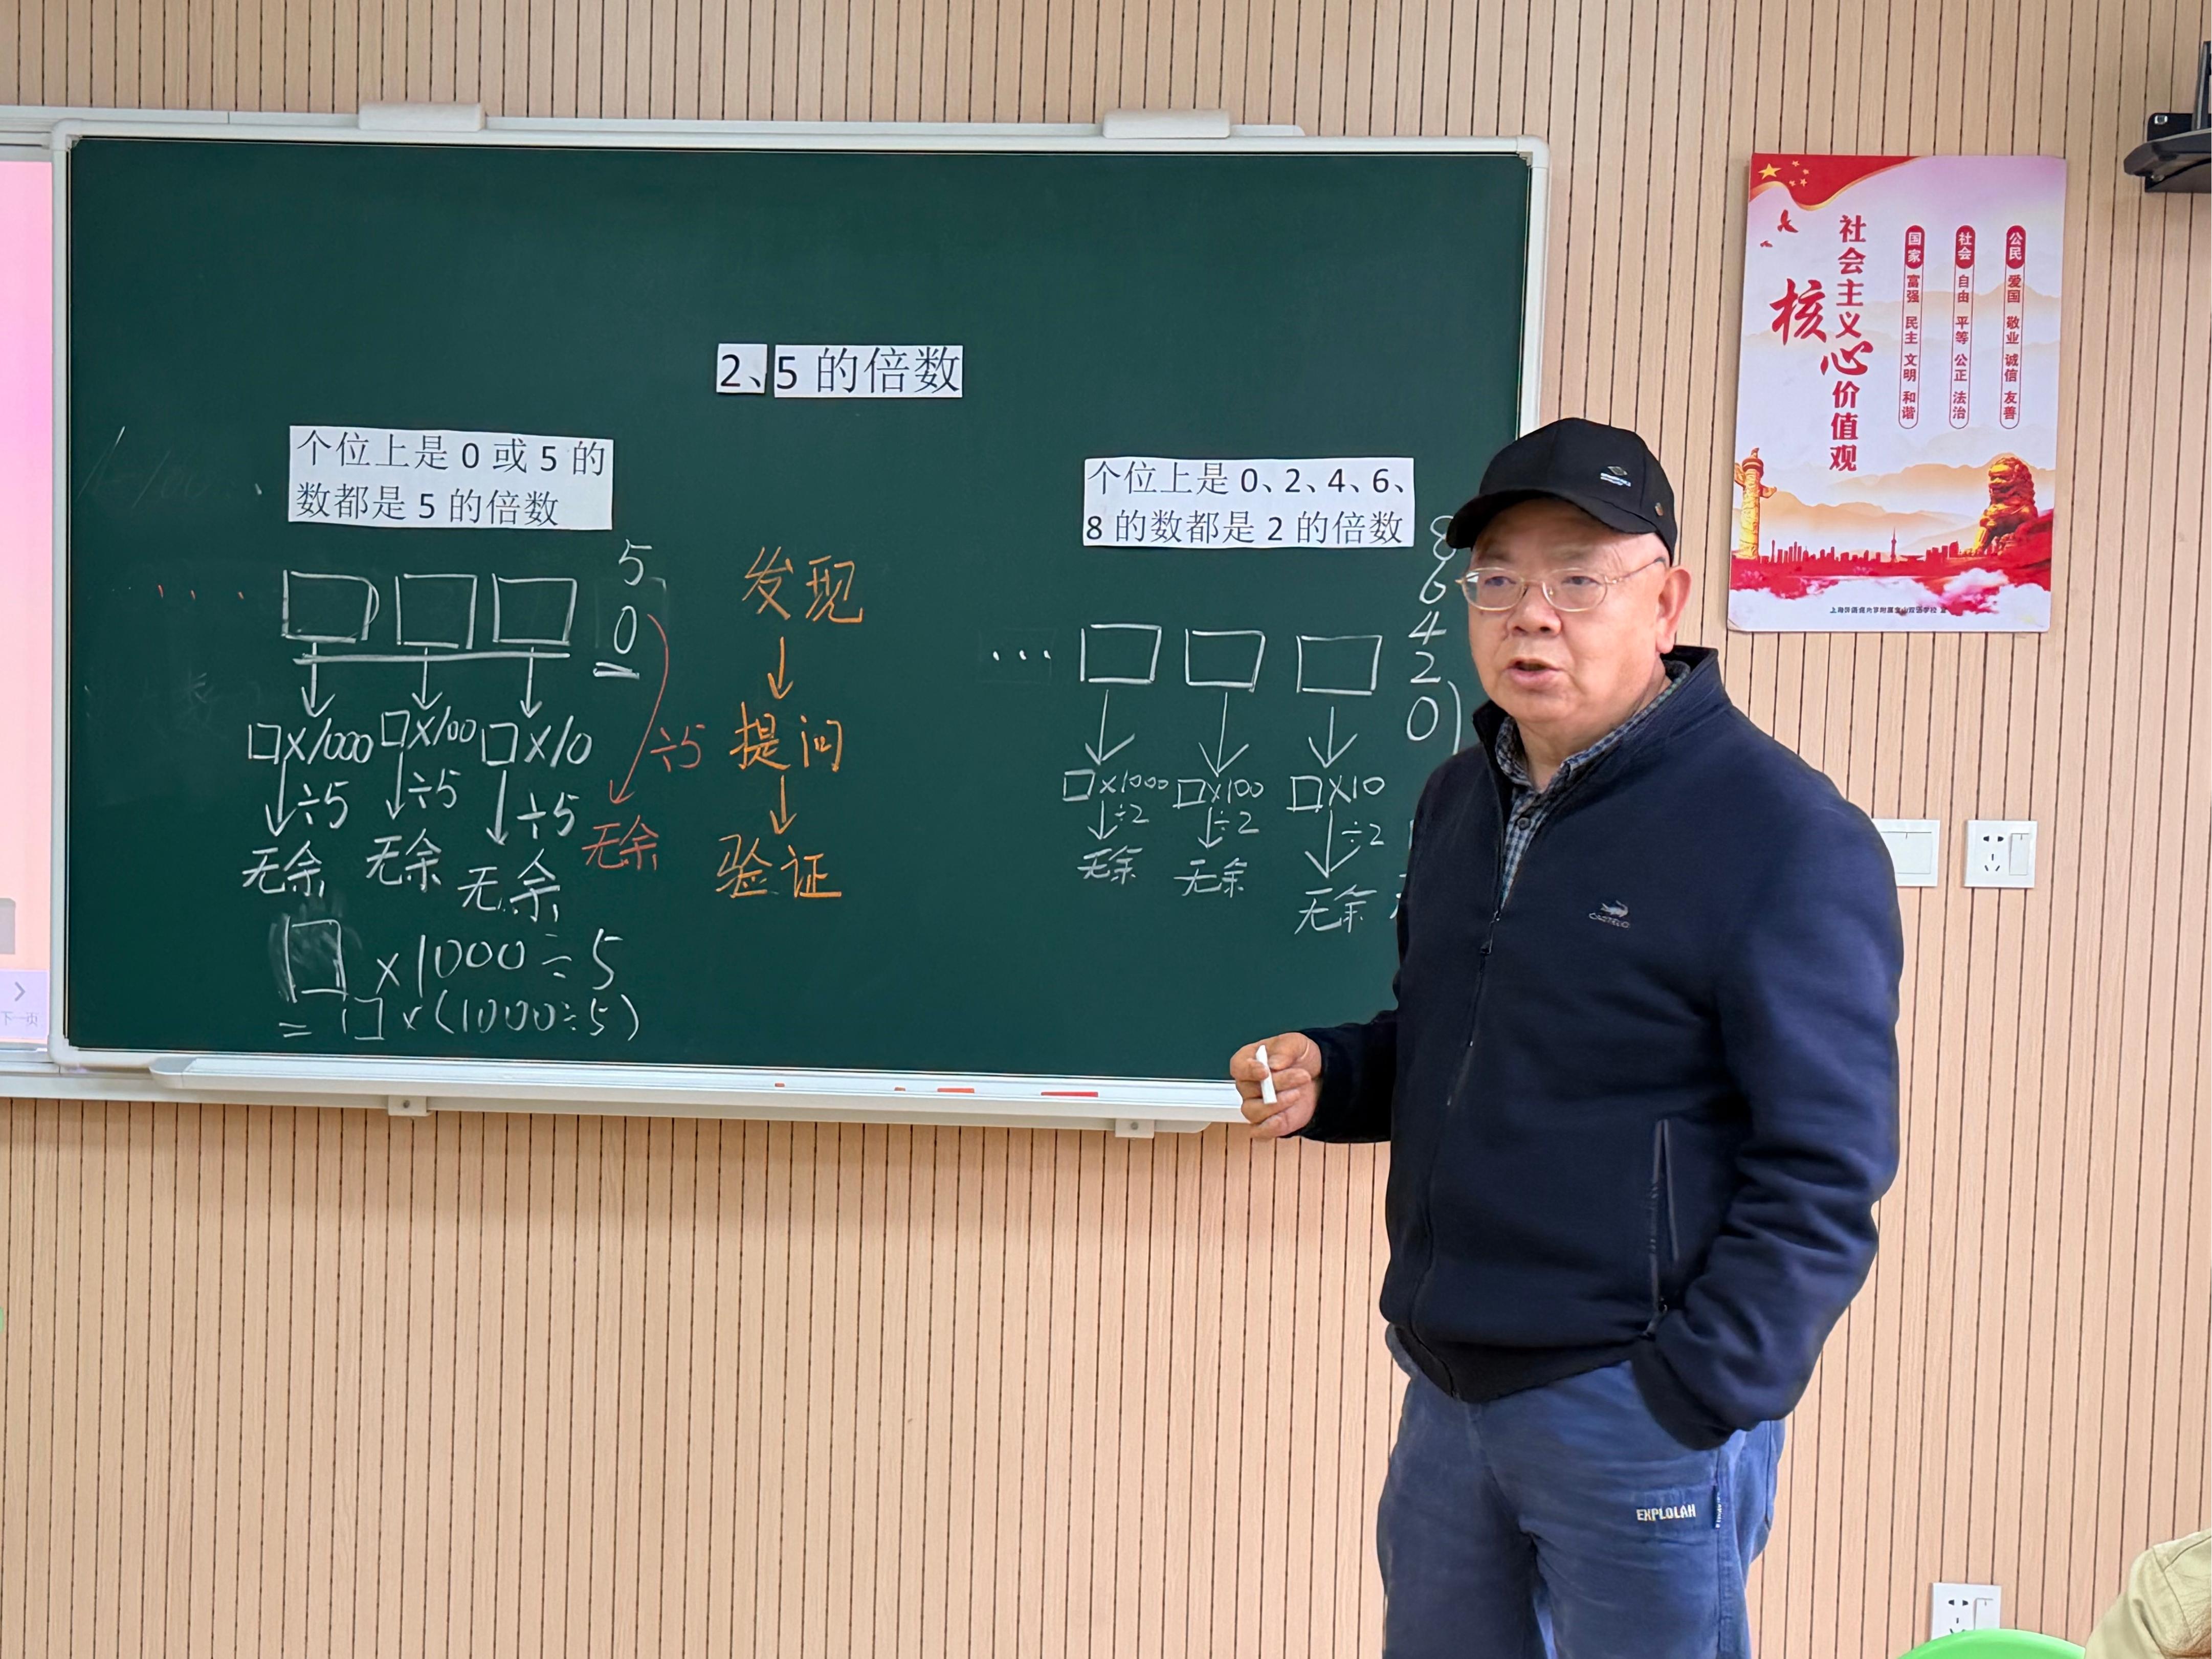 2、5 的倍数
个位上是 0 或 5 的
数都是 5 的倍数
5
0
□×1000 □×100 □×10
÷5 ÷5 ÷5 ÷5
无余 无余 无余 无余
□ ×1000÷5
= □×(1000÷5)
发现
提问
验证
个位上是 0、2、4、6、
8 的数都是 2 的倍数
8
6
4
2
0
□×1000 □×100 □×10
÷2 ÷2 ÷2
无余 无余 无余
下一页
社会主义
核心
价值观
国家 富强 民主 文明 和谐
社会 自由 平等 公正 法治
公民 爱国 敬业 诚信 友善
EXPLOLAH